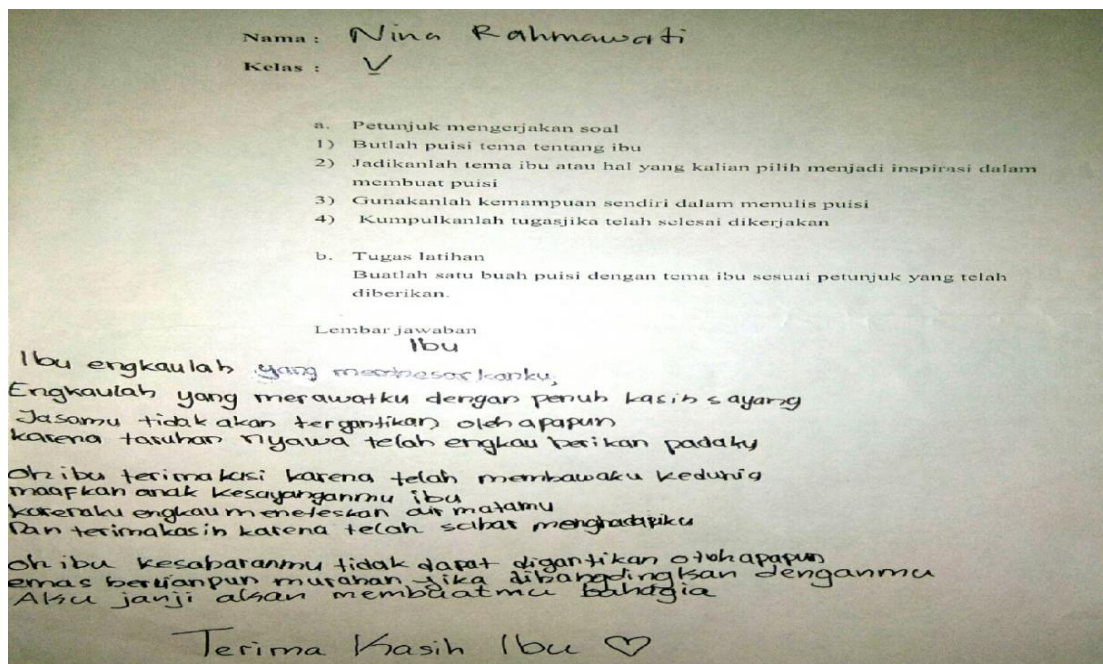 Nama : Nina Rahmawati
Kelas : V
a. Petunjuk mengerjakan soal
1) Butlah puisi tema tentang ibu
2) Jadikanlah tema ibu atau hal yang kalian pilih menjadi inspirasi dalam
membuat puisi
3) Gunakanlah kemampuan sendiri dalam menulis puisi
4) Kumpulkanlah tugasjika telah selesai dikerjakan
b. Tugas latihan
Buatlah satu buah puisi dengan tema ibu sesuai petunjuk yang telah
diberikan.
Lembar jawaban
Ibu
Ibu engkaulah yang membesarkanku,
Engkaulah yang merawatku dengan penuh kasih sayang
Jasamu tidak akan tergantikan oleh apapun
karena taruhan nyawa telah engkau berikan padaku
oh ibu terima kasi karena telah membawaku kedunia
maafkan anak kesayanganmu ibu
karenaku engkau meneteskan air matamu
Dan terimakasih karena telah sabar menghadapiku
oh ibu kesabaranmu tidak dapat digantikan oleh apapun
emas berlianpun murahan jika dibangdingkan denganmu
Aku janji akan membuatmu bahagia
Terima Kasih Ibu ♡